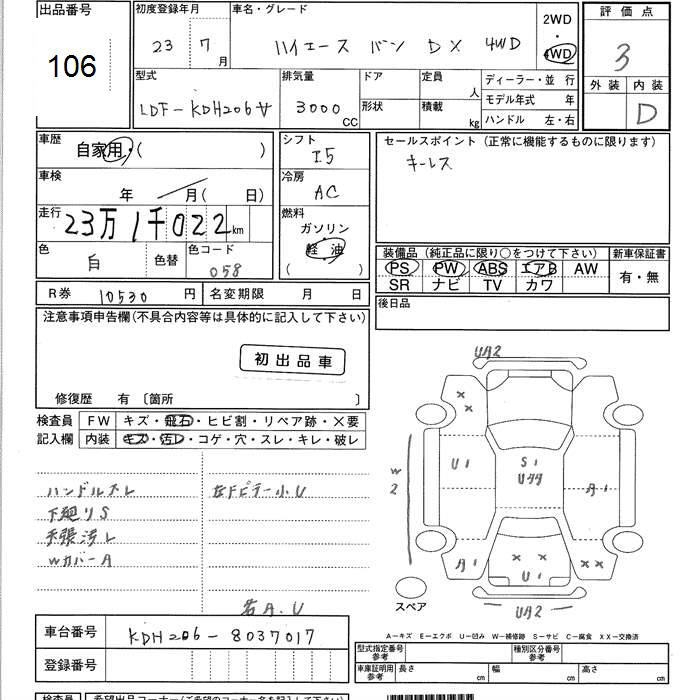 出品番号
106
初度登録年月
23 7月
車名・グレード
ハイエース バン DX 4WD
2WD
4WD
評価点
3
外装 内装
D
型式
LDF-KDH206V
排気量
3000 CC
ドア
形状
定員 人
積載 kg
ディーラー・並行
モデル年式 年
ハンドル 左・右
車歴
自家用・( )
車検
年 月( 日)
走行
23万1千022km
色
白
色替
色コード
058
シフト
I5
冷房
AC
燃料
ガソリン
軽油
( )
セールスポイント (正常に機能するものに限ります)
キーレス
装備品 (純正品に限り○をつけて下さい) 新車保証書
PS PW ABS エアB AW
SR ナビ TV カワ
有・無
R券 10530 円 名変期限 月 日
後日品
注意事項申告欄(不具合内容等は具体的に記入して下さい)
初出品車
修復歴 有 〔箇所 〕
検査員
記入欄
FW キズ・飛石・ヒビ割・リペア跡・×要
内装 キズ・汚レ・コゲ・穴・スレ・キレ・破レ
ハンドルスレ
下廻りS
天張汚レ
WカバーA
左Fピラー小U
若A.U
UA2
××
U1
S1
U44
A1
W
2
A1
××
U1
××
UA2
スペア
A―キズ E―エクボ U―凹み W―補修跡 S―サビ C―腐食 XX―交換済
車台番号 KDH206-8037017
登録番号
型式指定番号
参考
種別区分番号
参考
車庫証明用
参考
長さ cm 幅 cm 高さ cm
検査員
希望出品コーナー(ご希望のコーナー名を記入して下さい)